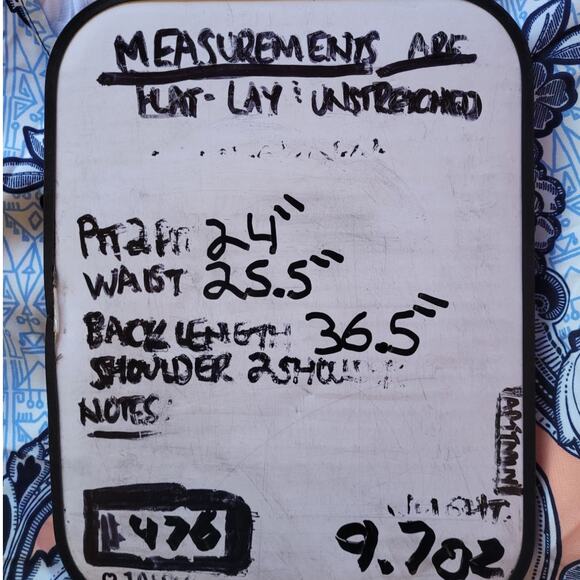 MEASUREMENTS ARE
FLAT-LAY & UNSTRETCHED
PIT 2 PIT 24"
WAIST 25.5"
BACK LENGTH 36.5"
SHOULDER 2 SHOULDER
NOTES:
WEIGHT:
# 476
9.7oz